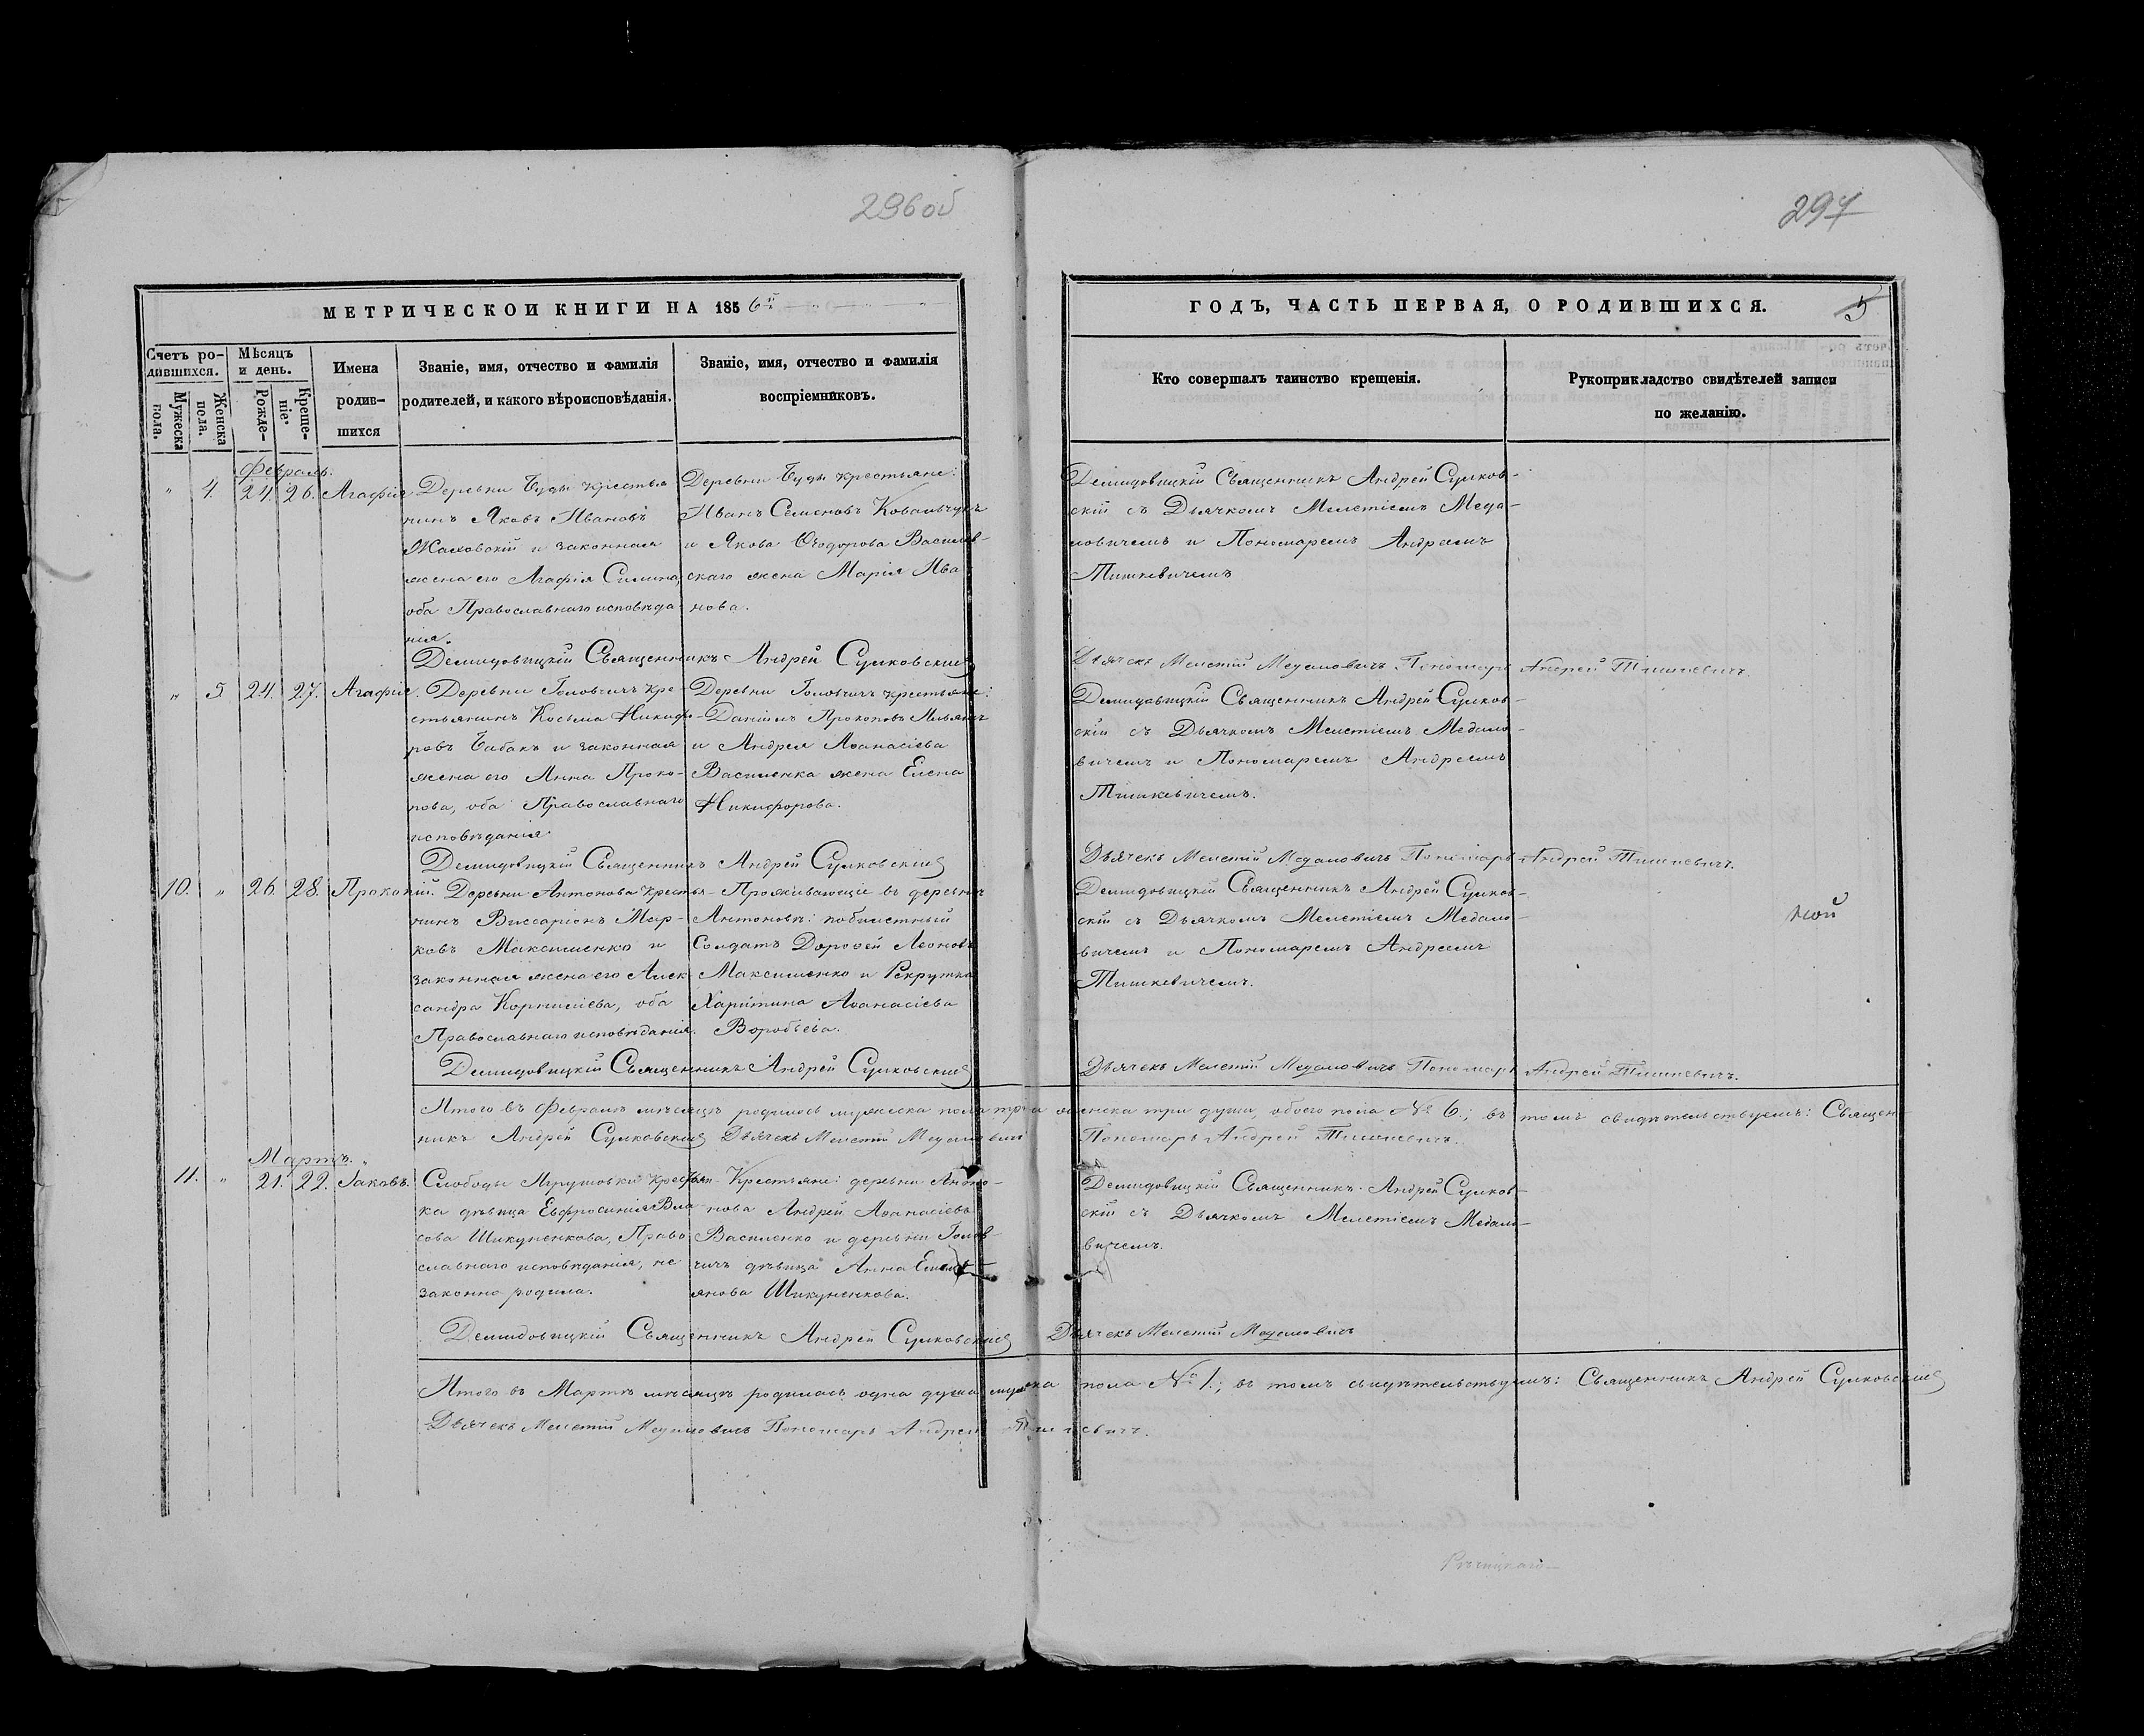 296 об
297
МЕТРИЧЕСКОЙ КНИГИ НА 1856й
ГОДЪ, ЧАСТЬ ПЕРВАЯ, О РОДИВШИХСЯ.
5
Счетъ ро-
дившихся.
Мужеска
пола.
Женска
пола.
Мѣсяцъ
и день.
Рожде-
Креще-
ніе.
Имена
родив-
шихся
Званіе, имя, отчество и фамилія
родителей, и какого вѣроисповѣданія.
Званіе, имя, отчество и фамилія
воспріемниковъ.
Кто совершалъ таинство крещенія.
Рукоприкладство свидѣтелей записи
по желанію.
Февраль.
" 4. 24. 26. Агафія
Деревни Буды крестья
нинъ Яковъ Ивановъ
и законная
жена его Агафія
оба Православнаго исповѣда
нія.
Деревни Буды крестьяне:
Иванъ Семеновъ Ковальчукъ
и Якова Ѳеодорова Василев-
скаго жена Марія Ива
нова.
Демидовицкій Священникъ Андрей Сулков-
скій съ Дьячкомъ Мелетіемъ Меда-
ловичемъ и Пономаремъ Андреемъ
Тишкевичемъ
Демидовицкій Священникъ Андрей Сулковскій
Дьячекъ Мелетій Медаловичъ Пономарь Андрей Тишкевичъ.
" 5 24. 27. Агафія.
Деревни Головчичъ кре-
стьянинъ Косьма Никифо-
ровъ Бабакъ и законная
жена его Анна Проко-
пова, оба Православнаго
исповѣданія.
Деревни Головчичъ крестьяне:
Даніилъ Прокоповъ
и Андрея Аѳанасіева
Василенка жена Елена
Никифорова.
Демидовицкій Священникъ Андрей Сулков-
скій съ Дьячкомъ Мелетіемъ Медало-
вичемъ и Пономаремъ Андреемъ
Тишкевичемъ.
Демидовицкій Священникъ Андрей Сулковскій
Дьячекъ Мелетій Медаловичъ Пономарь Андрей Тишкевичъ.
10. " 26. 28. Прокопій.
Деревни Антонова крестья-
нинъ Виссаріонъ Мар-
ковъ Максименко и
законная жена его Алек
сандра Корниліева, оба
Православнаго исповѣданія.
Проживающіе въ деревни
Антоновѣ: побилетный
Солдатъ Дороѳей Леоновъ
Максименко и Рекрутка
Харитина Аѳанасіева
Воробьева.
Демидовицкій Священникъ Андрей Сулков-
скій съ Дьячкомъ Мелетіемъ Медало-
вичемъ и Пономаремъ Андреемъ
Тишкевичемъ.
Демидовицкій Священникъ Андрей Сулковскій
Дьячекъ Мелетій Медаловичъ Пономарь Андрей Тишкевичъ.
Итого въ Февралѣ мѣсяцѣ родилось мужеска пола три женска три души, обоего пола № 6.; въ томъ свидѣтельствуемъ: Священ-
никъ Андрей Сулковскій Дьячекъ Мелетій Медаловичъ Пономарь Андрей Тишкевичъ.
Мартъ.
11. " 21. 22. Іаковъ.
Слободы крестьян-
ка дѣвица Евфросинія Вла
сова Шикуненкова, Право
славнаго исповѣданія, не
законно родила.
Крестьяне: деревни Анто-
нова Андрей Аѳанасіевъ
Василенко и деревни Голов-
чичъ дѣвица Анна Емель
янова Шикуненкова.
Демидовицкій Священникъ Андрей Сулков-
скій съ Дьячкомъ Мелетіемъ Медало-
вичемъ.
Демидовицкій Священникъ Андрей Сулковскій Дьячекъ Мелетій Медаловичъ
Итого въ Мартѣ мѣсяцѣ родилась одна душа мужска пола № 1.; въ томъ свидѣтельствуемъ: Священникъ Андрей Сулковскій
Дьячекъ Мелетій Медаловичъ Пономарь Андрей Тишкевичъ.
Рѣчицкаго